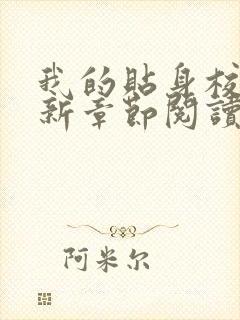 我的貼身校
新章節閱讀
阿米尔